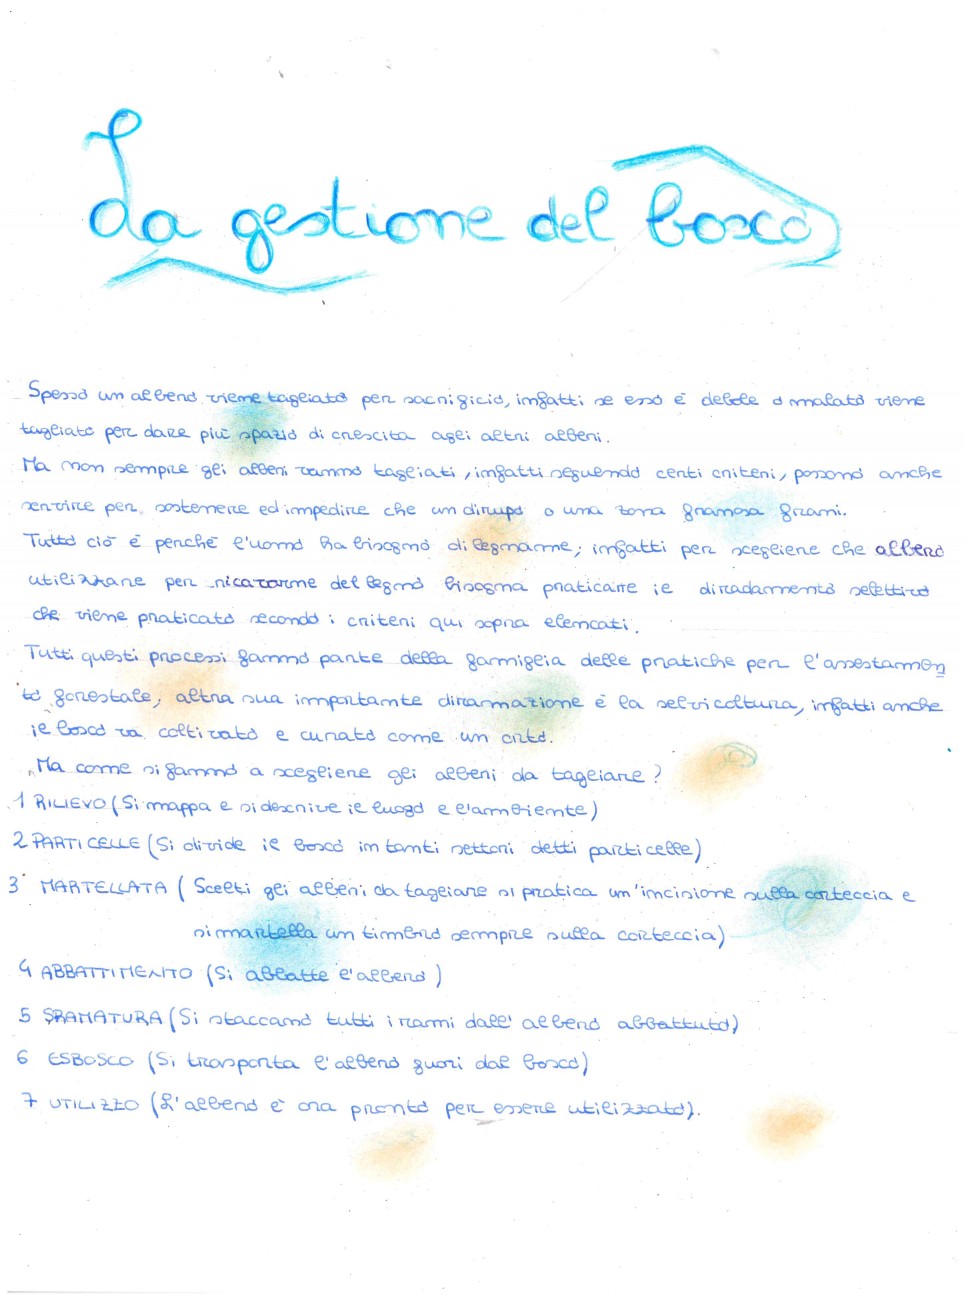 La gestione del bosco
Spesso un albero viene tagliato per sacrificio, infatti se esso è debole o malato viene
tagliato per dare più spazio di crescita agli altri alberi.
Ma non sempre gli alberi vanno tagliati, infatti seguendo certi criteri, possono anche
servire per sostenere ed impedire che un dirupo o una zona franosa frani.
Tutto ciò è perché l'uomo ha bisogno di legname, infatti per scegliere che albero
utilizzare per ricavarne del legno bisogna praticare il diradamento selettivo
che viene praticato secondo i criteri qui sopra elencati.
Tutti questi processi fanno parte della famiglia delle pratiche per l'assestamen
to forestale, altra sua importante diramazione è la selvicoltura, infatti anche
il bosco va coltivato e curato come un orto.
Ma come si fanno a scegliere gli alberi da tagliare?
1 RILIEVO (Si mappa e si descrive il luogo e l'ambiente)
2 PARTICELLE (Si divide il bosco in tanti settori detti particelle)
3 MARTELLATA (Scelti gli alberi da tagliare si pratica un'incisione sulla corteccia e
si martella un timbro sempre sulla corteccia)
4 ABBATTIMENTO (Si abbatte l'albero)
5 SRAMATURA (Si staccano tutti i rami dall'albero abbattuto)
6 ESBOSCO (Si trasporta l'albero fuori dal bosco)
7 UTILIZZO (L'albero è ora pronto per essere utilizzato).